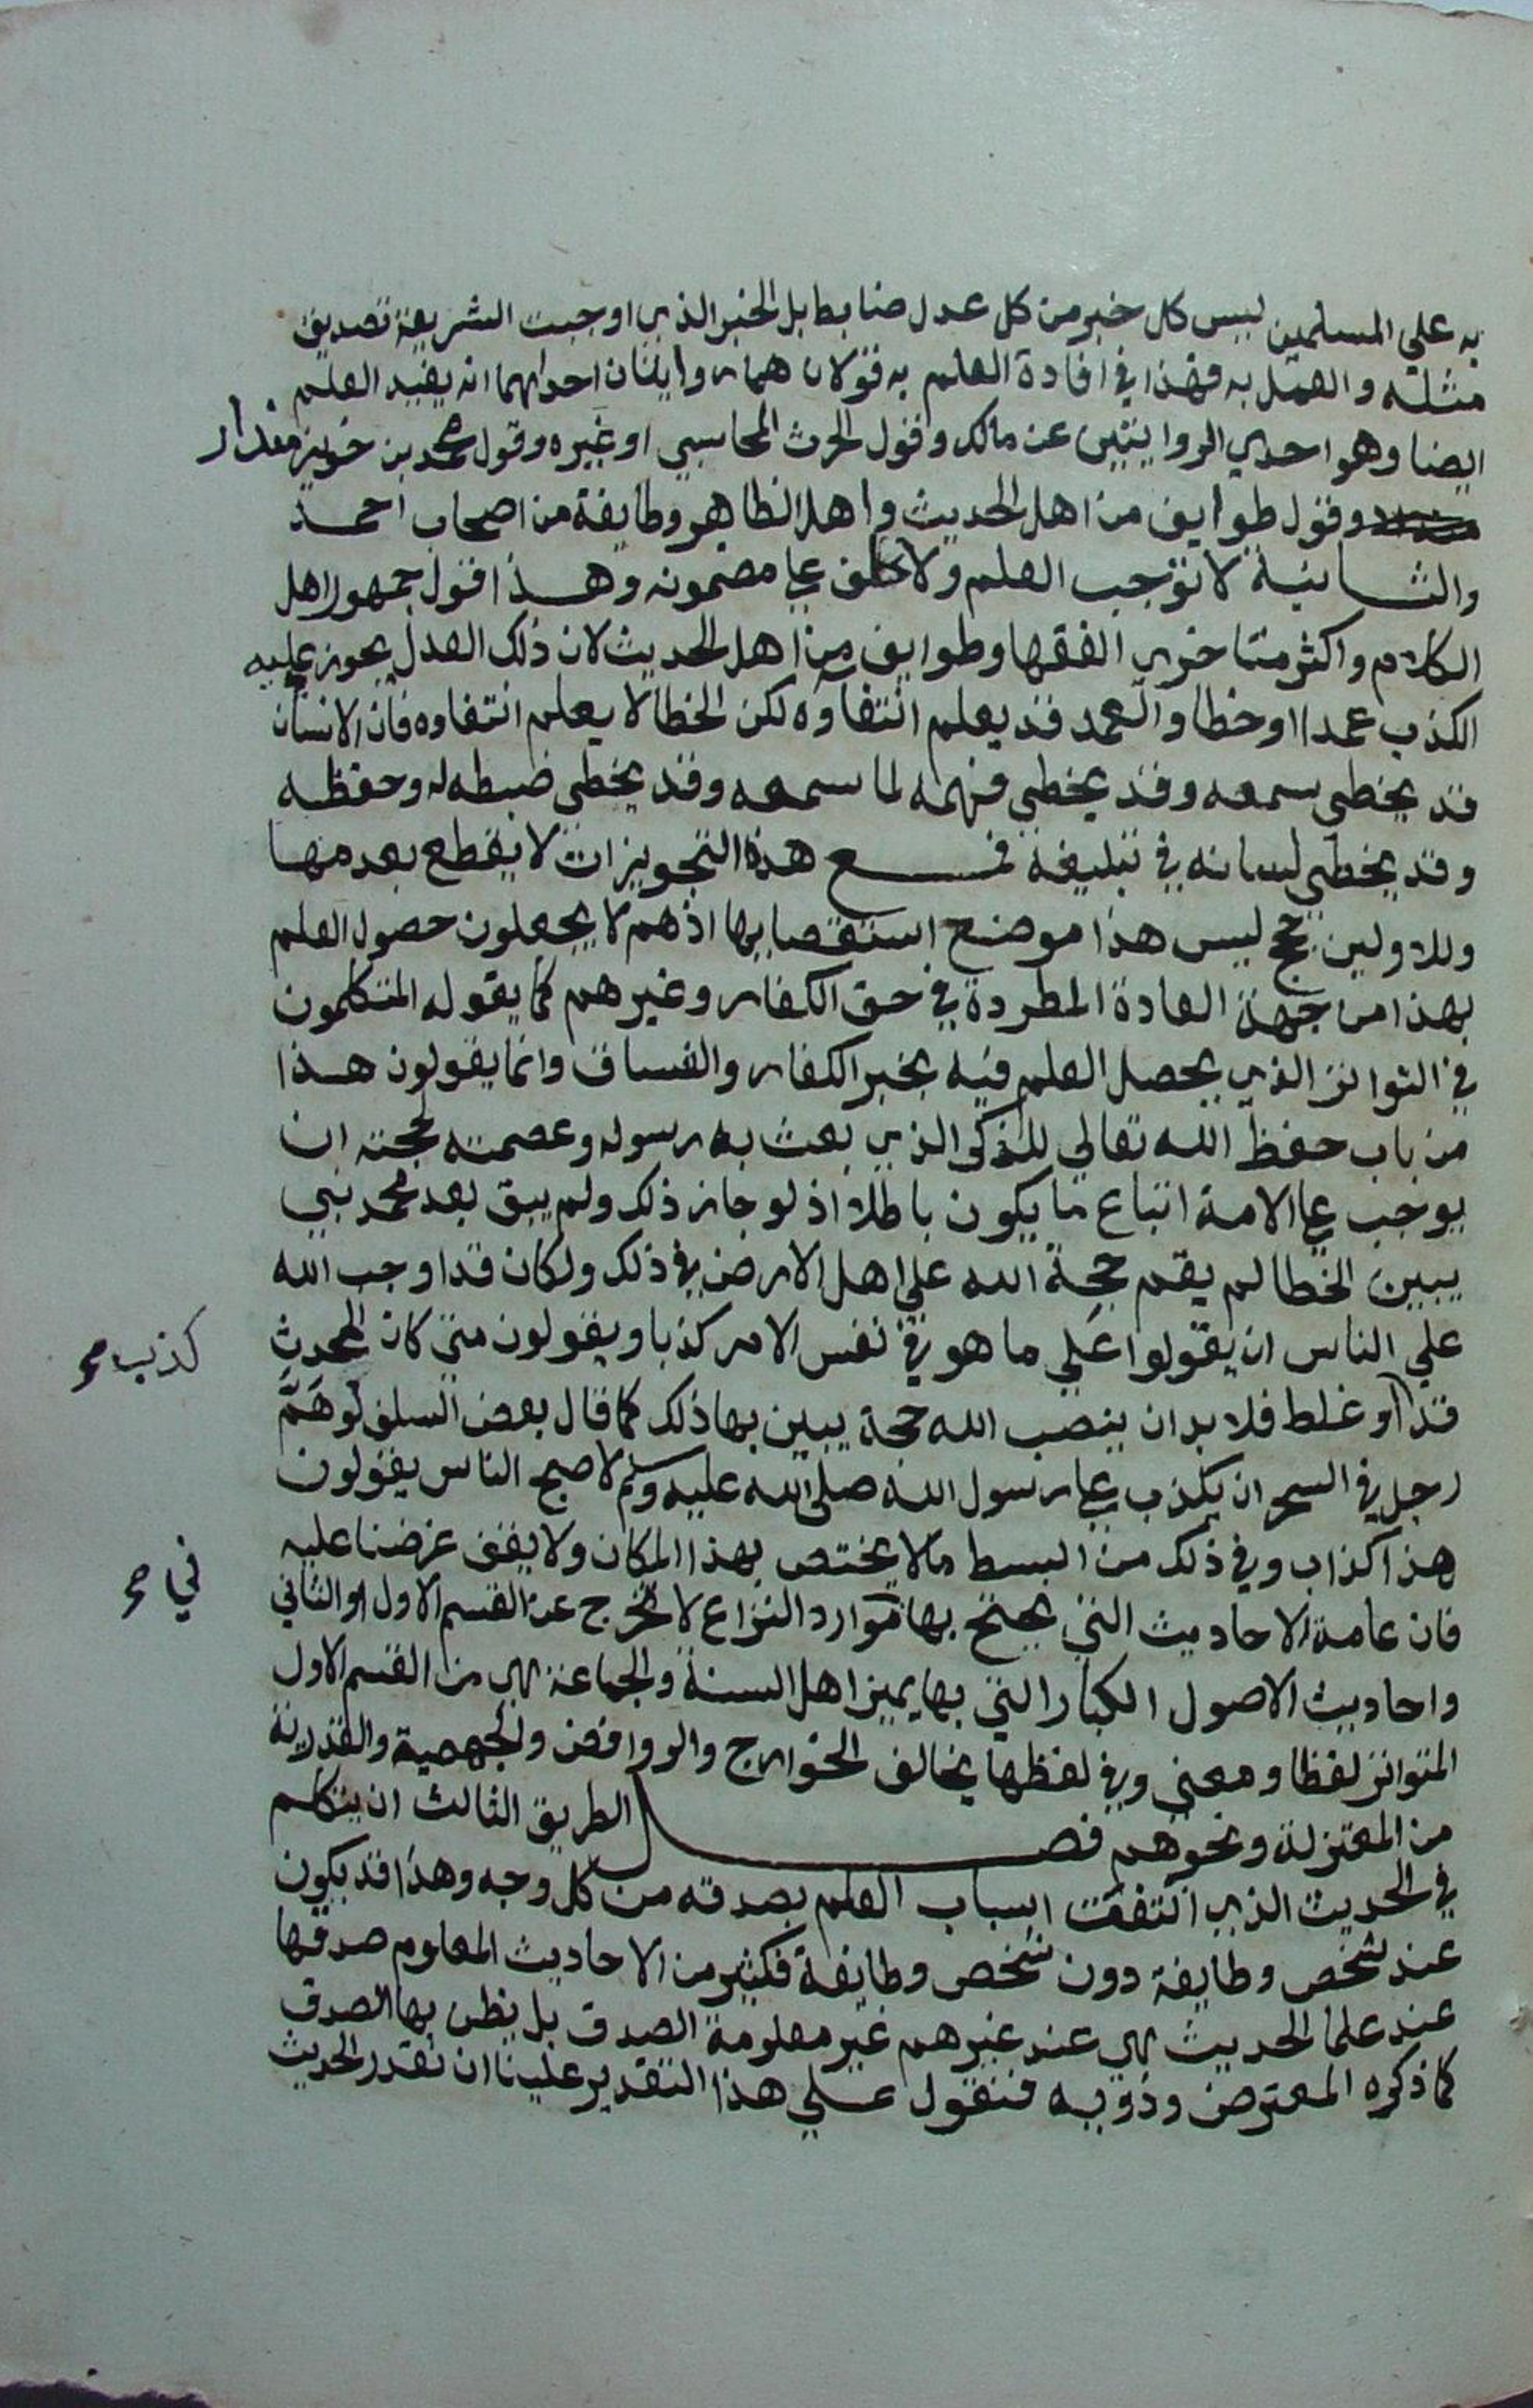 به علي المسلمين ليس كل خبر من كل عدل ضابط بل الخبر الذي اوجبت الشريعة تصديق
مثله والعمل به فهذا في افادة العلم به قولان هما روايتان احداهما انه يفيد العلم
ايضا وهو احدي الروايتين عن مالك وقول الحرث المحاسبي او غيره وقول محمد بن خويز منداد
وقول طوايف من اهل الحديث واهل الظاهر وطايفة من اصحاب احمد
والثانية لا توجب العلم ولا تحلف علي مضمونه وهذا قول جمهور اهل
الكلام واكثر متاخري الفقها وطوايف من اهل الحديث لان ذلك العدل يجوز عليه
الكذب عمدا او خطا والعمد قد يعلم انتفاؤه لكن الخطا لا يعلم انتفاوه فان الانسان
قد يخطي سمعه وقد يخطي فهمه لما سمعه وقد يخطي ضبطه له وحفظه
وقد يخطي لسانه في تبليغه فمع هذه التجويزات لا يقطع بعدمها
وللاولين حجج ليس هذا موضع استقصايها اذ هم لا يجعلون حصول العلم
بهذا من جهة العادة المطردة في حق الكفار وغيرهم كما يقوله المتكلمون
في التواتر الذي يحصل العلم فيه بخبر الكفار والفساق وانما يقولون هذا
من باب حفظ الله تعالي للذكر الذي بعث به رسوله وعصمته لحجته ان
يوجب علي الامة اتباع ما يكون باطلا اذ لو جاز ذلك ولم يبق بعد محمد نبي
يبين الخطا لم يقم حجة الله علي اهل الارض في ذلك ولكان قد اوجب الله
علي الناس ان يقولوا علي ما هو في نفس الامر كذبا ويقولون متي كان المحدث
كذب صح
قد او غلط فلا بد ان ينصب الله حجة يبين بها ذلك كما قال بعض السلف لو هَمَّ
رجل في السحر ان يكذب علي رسول الله صلى الله عليه وسلم لاصبح الناس يقولون
هذا كذاب وفي ذلك من البسط مالا يختص بهذا المكان ولا يقف غرضنا عليه
فان عامة الاحاديث التي يحتج بها موارد النزاع لا تخرج عن القسم الاول او الثاني
في صح
واحاديث الاصول الكبار التي بها يميز اهل السنة والجماعة هي من القسم الاول
المتواتر لفظا ومعني وفي لفظها يخالف الخوارج والروافض والجهمية والقدرية
من المعتزلة ونحوهم فصل الطريق الثالث ان يتكلم
في الحديث الذي انتفت اسباب العلم بصدقه من كل وجه وهذا قد يكون
عند شخص وطايفة دون شخص وطايفة فكثير من الاحاديث المعلوم صدقها
عند علما الحديث هي عند غيرهم غير معلومة الصدق بل يظن بها الصدق
كما ذكره المعترض وذويه فنقول علي هذا التقدير علينا ان نقدر الحديث